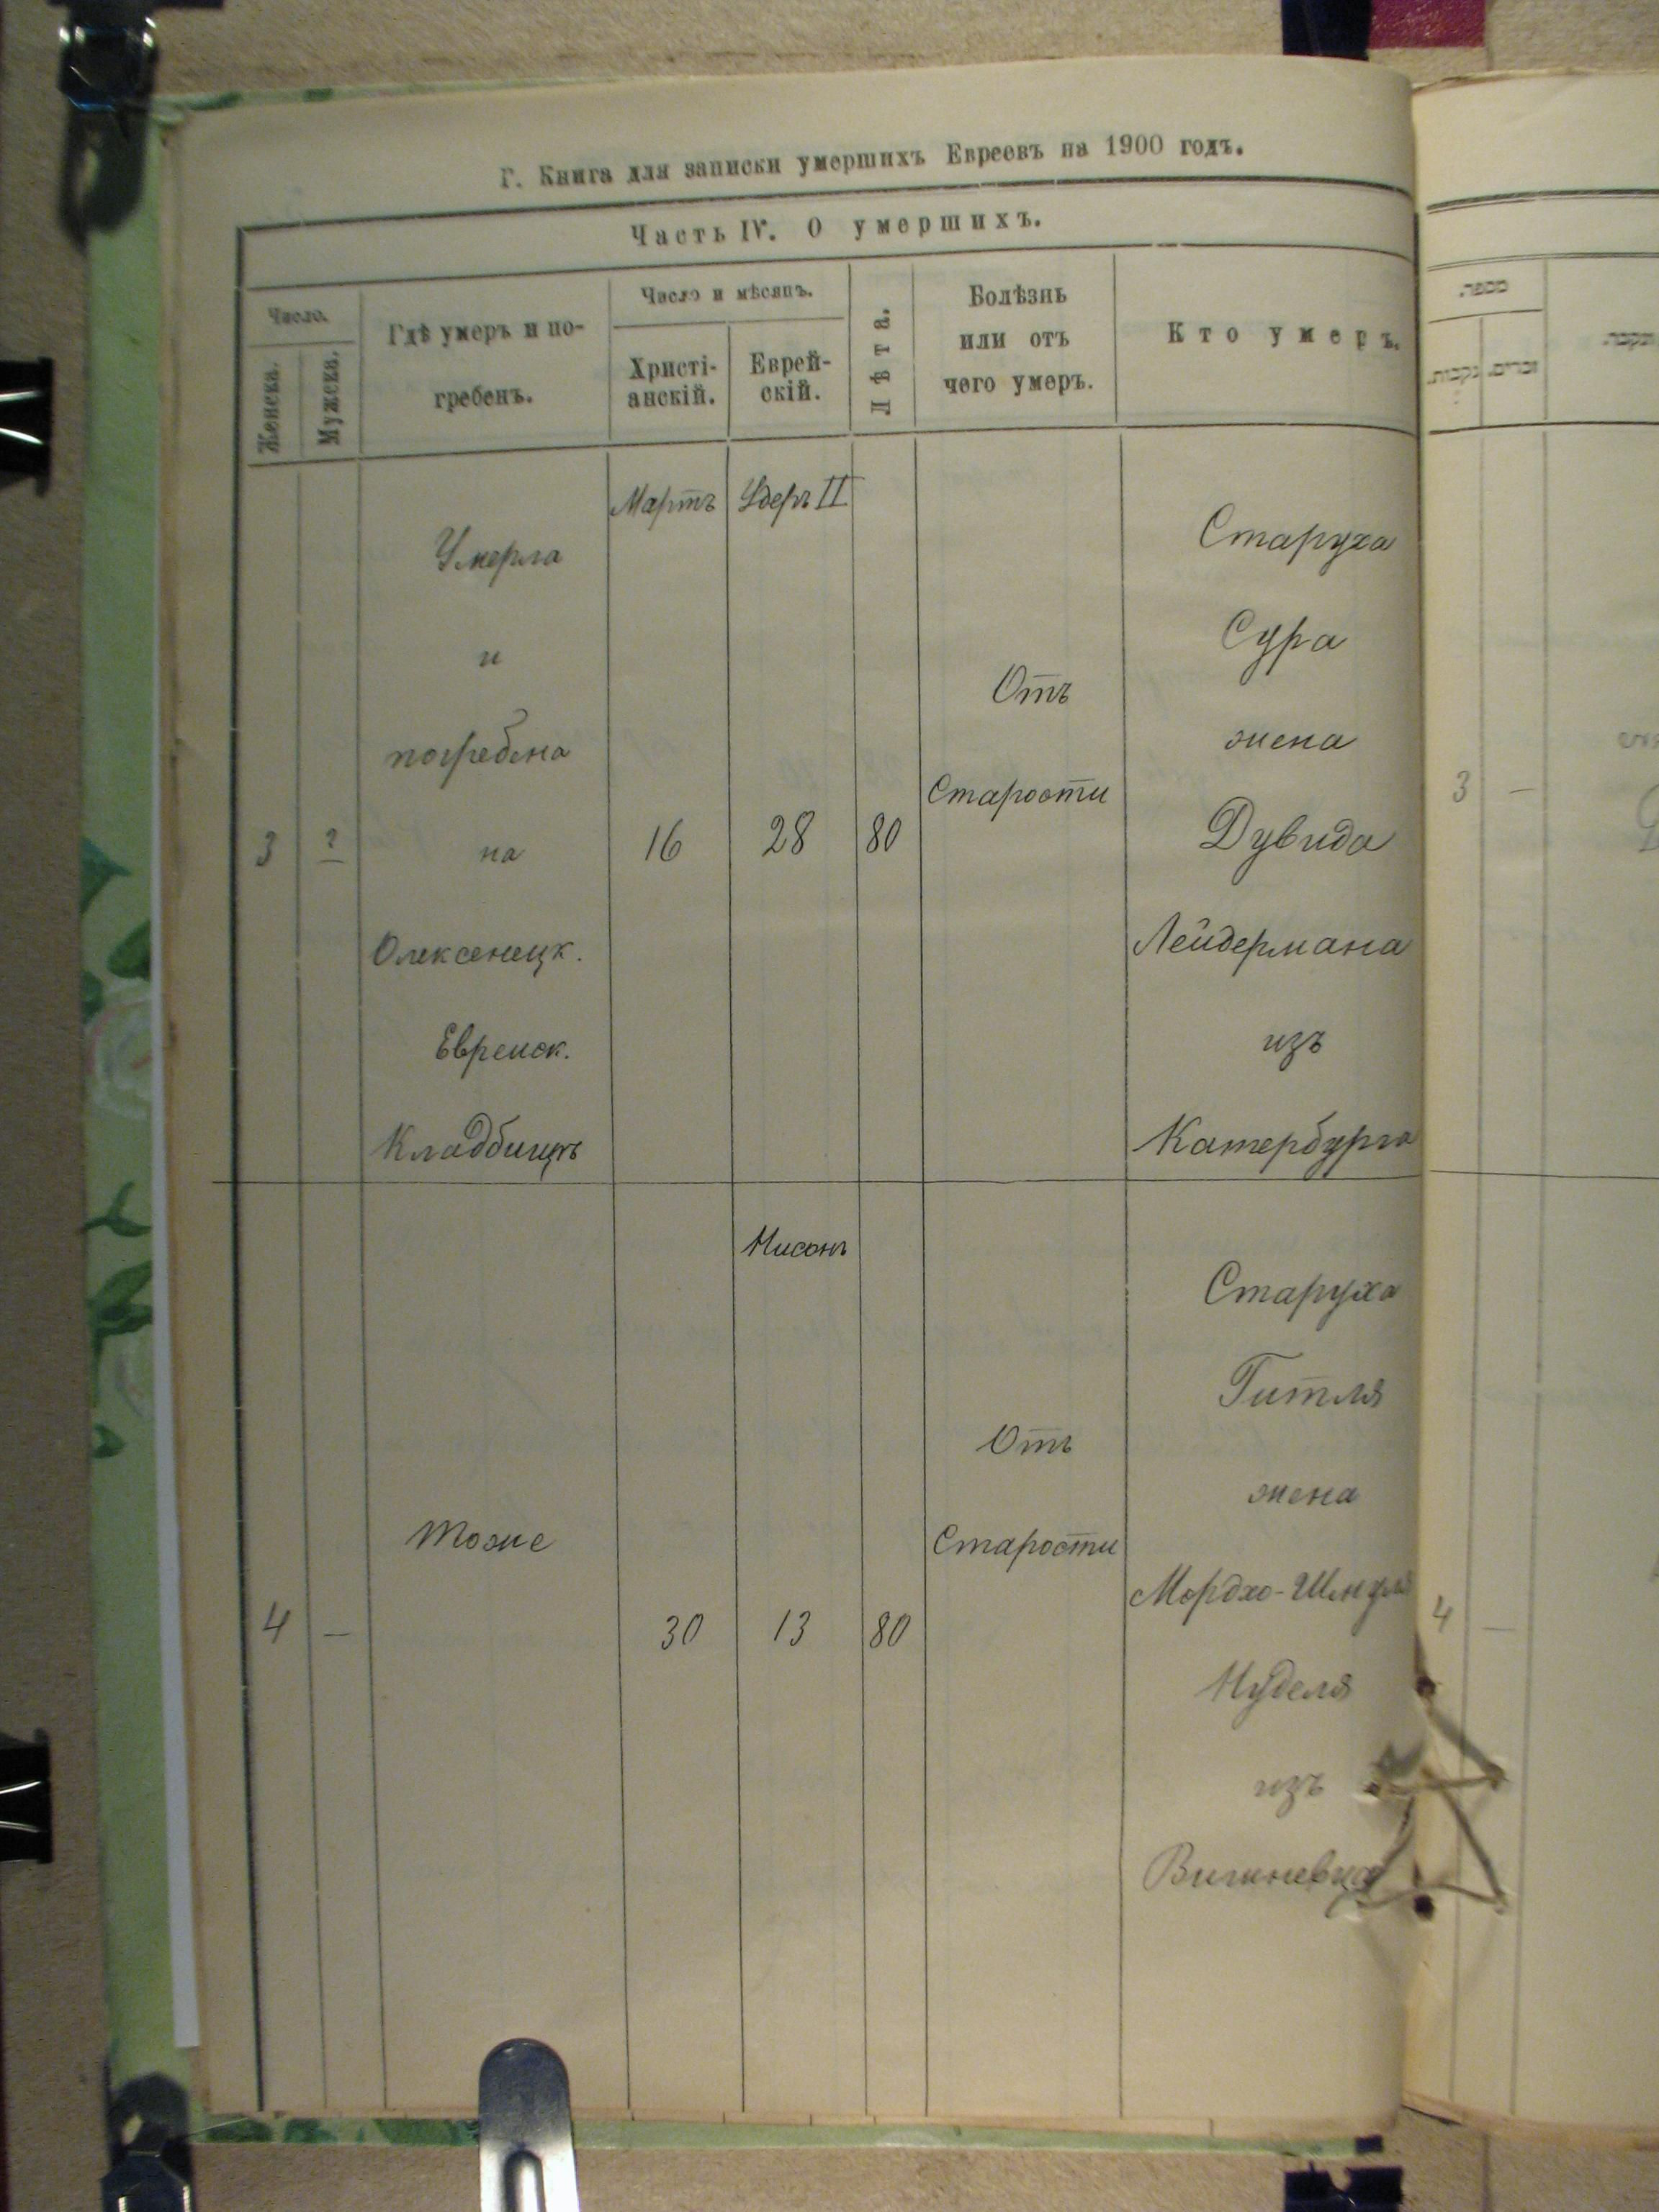 Г. Книга для записки умершихъ Евреевъ на 1900 годъ.
Часть IV. О умершихъ.
Число.
Женска.
Мужеска.
Гдѣ умеръ и по-
гребенъ.
Число и мѣсяцъ.
Христі-
анскій.
Еврей-
скій.
Лѣта.
Болѣзнь
или отъ
чего умеръ.
Кто умеръ.
Мартъ
Адеръ II
Умерла
и
погребена
на
Олексенецк.
Евреиск.
Кладбищѣ
3
16
28
80
Отъ
Старости
Старуха
Сура
жена
Дувида
Лейдермана
изъ
Катербурга
Нисонъ
4
—
Тоже
30
13
80
Отъ
Старости
Старуха
Гитля
жена
Мордхо-Шмуля
Нуделя
изъ
Вишневца
מספר.
נקבות.
זכרים.
3
—
4
—